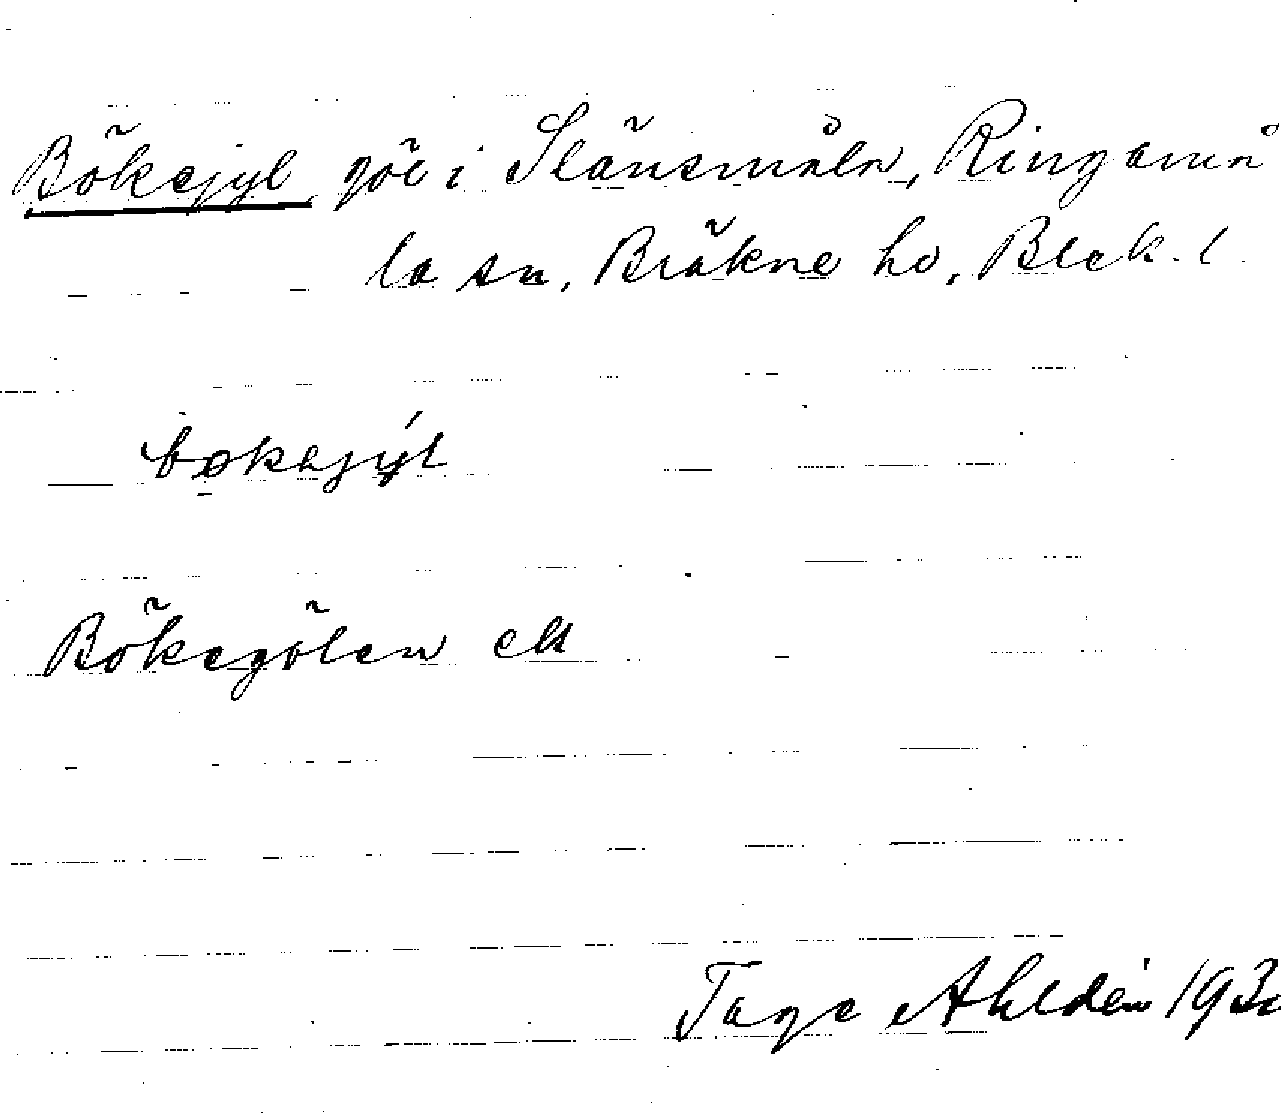 Bökejyl göl i Slänsmåla, Ringamå
la sn, Bräkne hd, Blek. l
bøkajýl
Bökegölen ek
Tage Ahldén 193